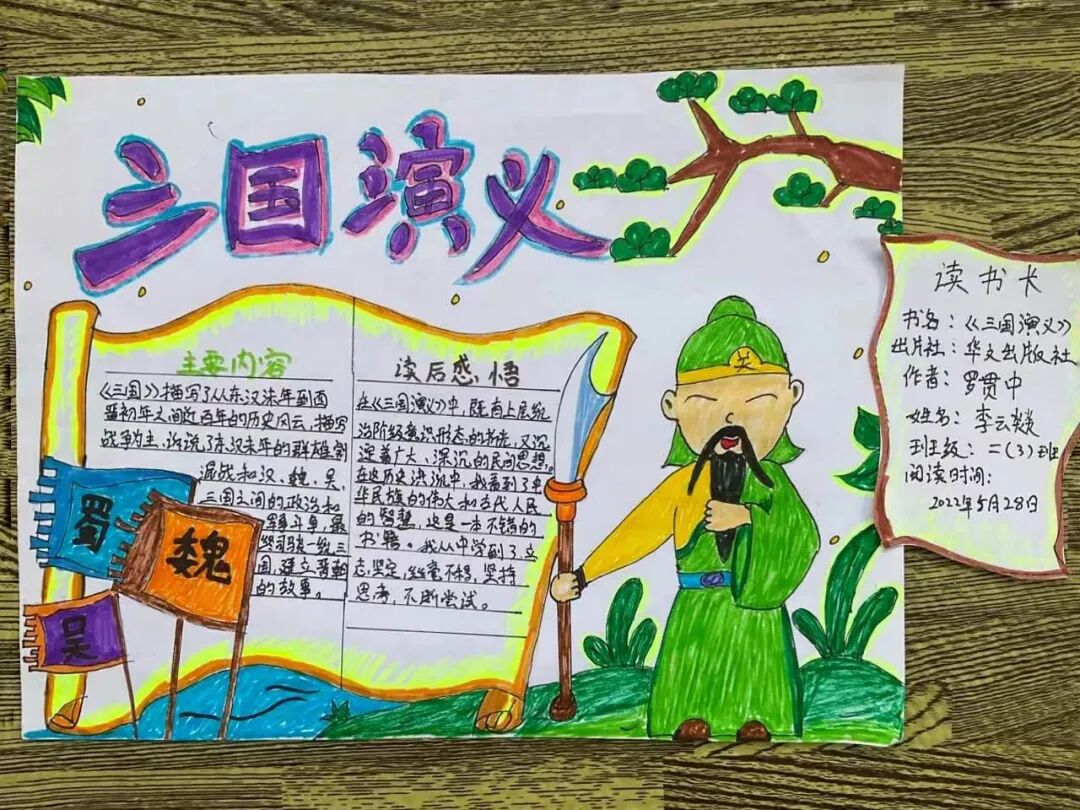 三国演义
主要内容
《三国》描写了从东汉末年到西
晋初年之间近百年的历史风云，描写
战争为主，诉说了东汉末年的群雄割
混战和汉、魏、吴、
三国之间的政治和
军事斗争，最
司马炎一统三
国，建立晋朝
的故事。
读后感悟
在《三国演义》中，既有上层统
治阶级意识形态的书法，又沉
淀着广大、深沉的民间思想。
在这历史洪流中，我看到了中
华民族的伟大和古代人民
的智慧，这是一本不错的
书籍。我从中学到了立
志坚定，丝毫不移，坚持
思考，不断尝试。
蜀
魏
吴
关
读书卡
书名：《三国演义》
出片社：华文出版社
作者：罗贯中
姓名：李云燚
班级：二（3）班
阅读时间：
2022年5月28日